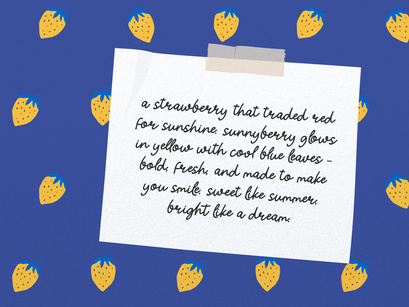 a strawberry that traded red
for sunshine. sunnyberry glows
in yellow with cool blue leaves -
bold, fresh, and made to make
you smile. sweet like summer,
bright like a dream.